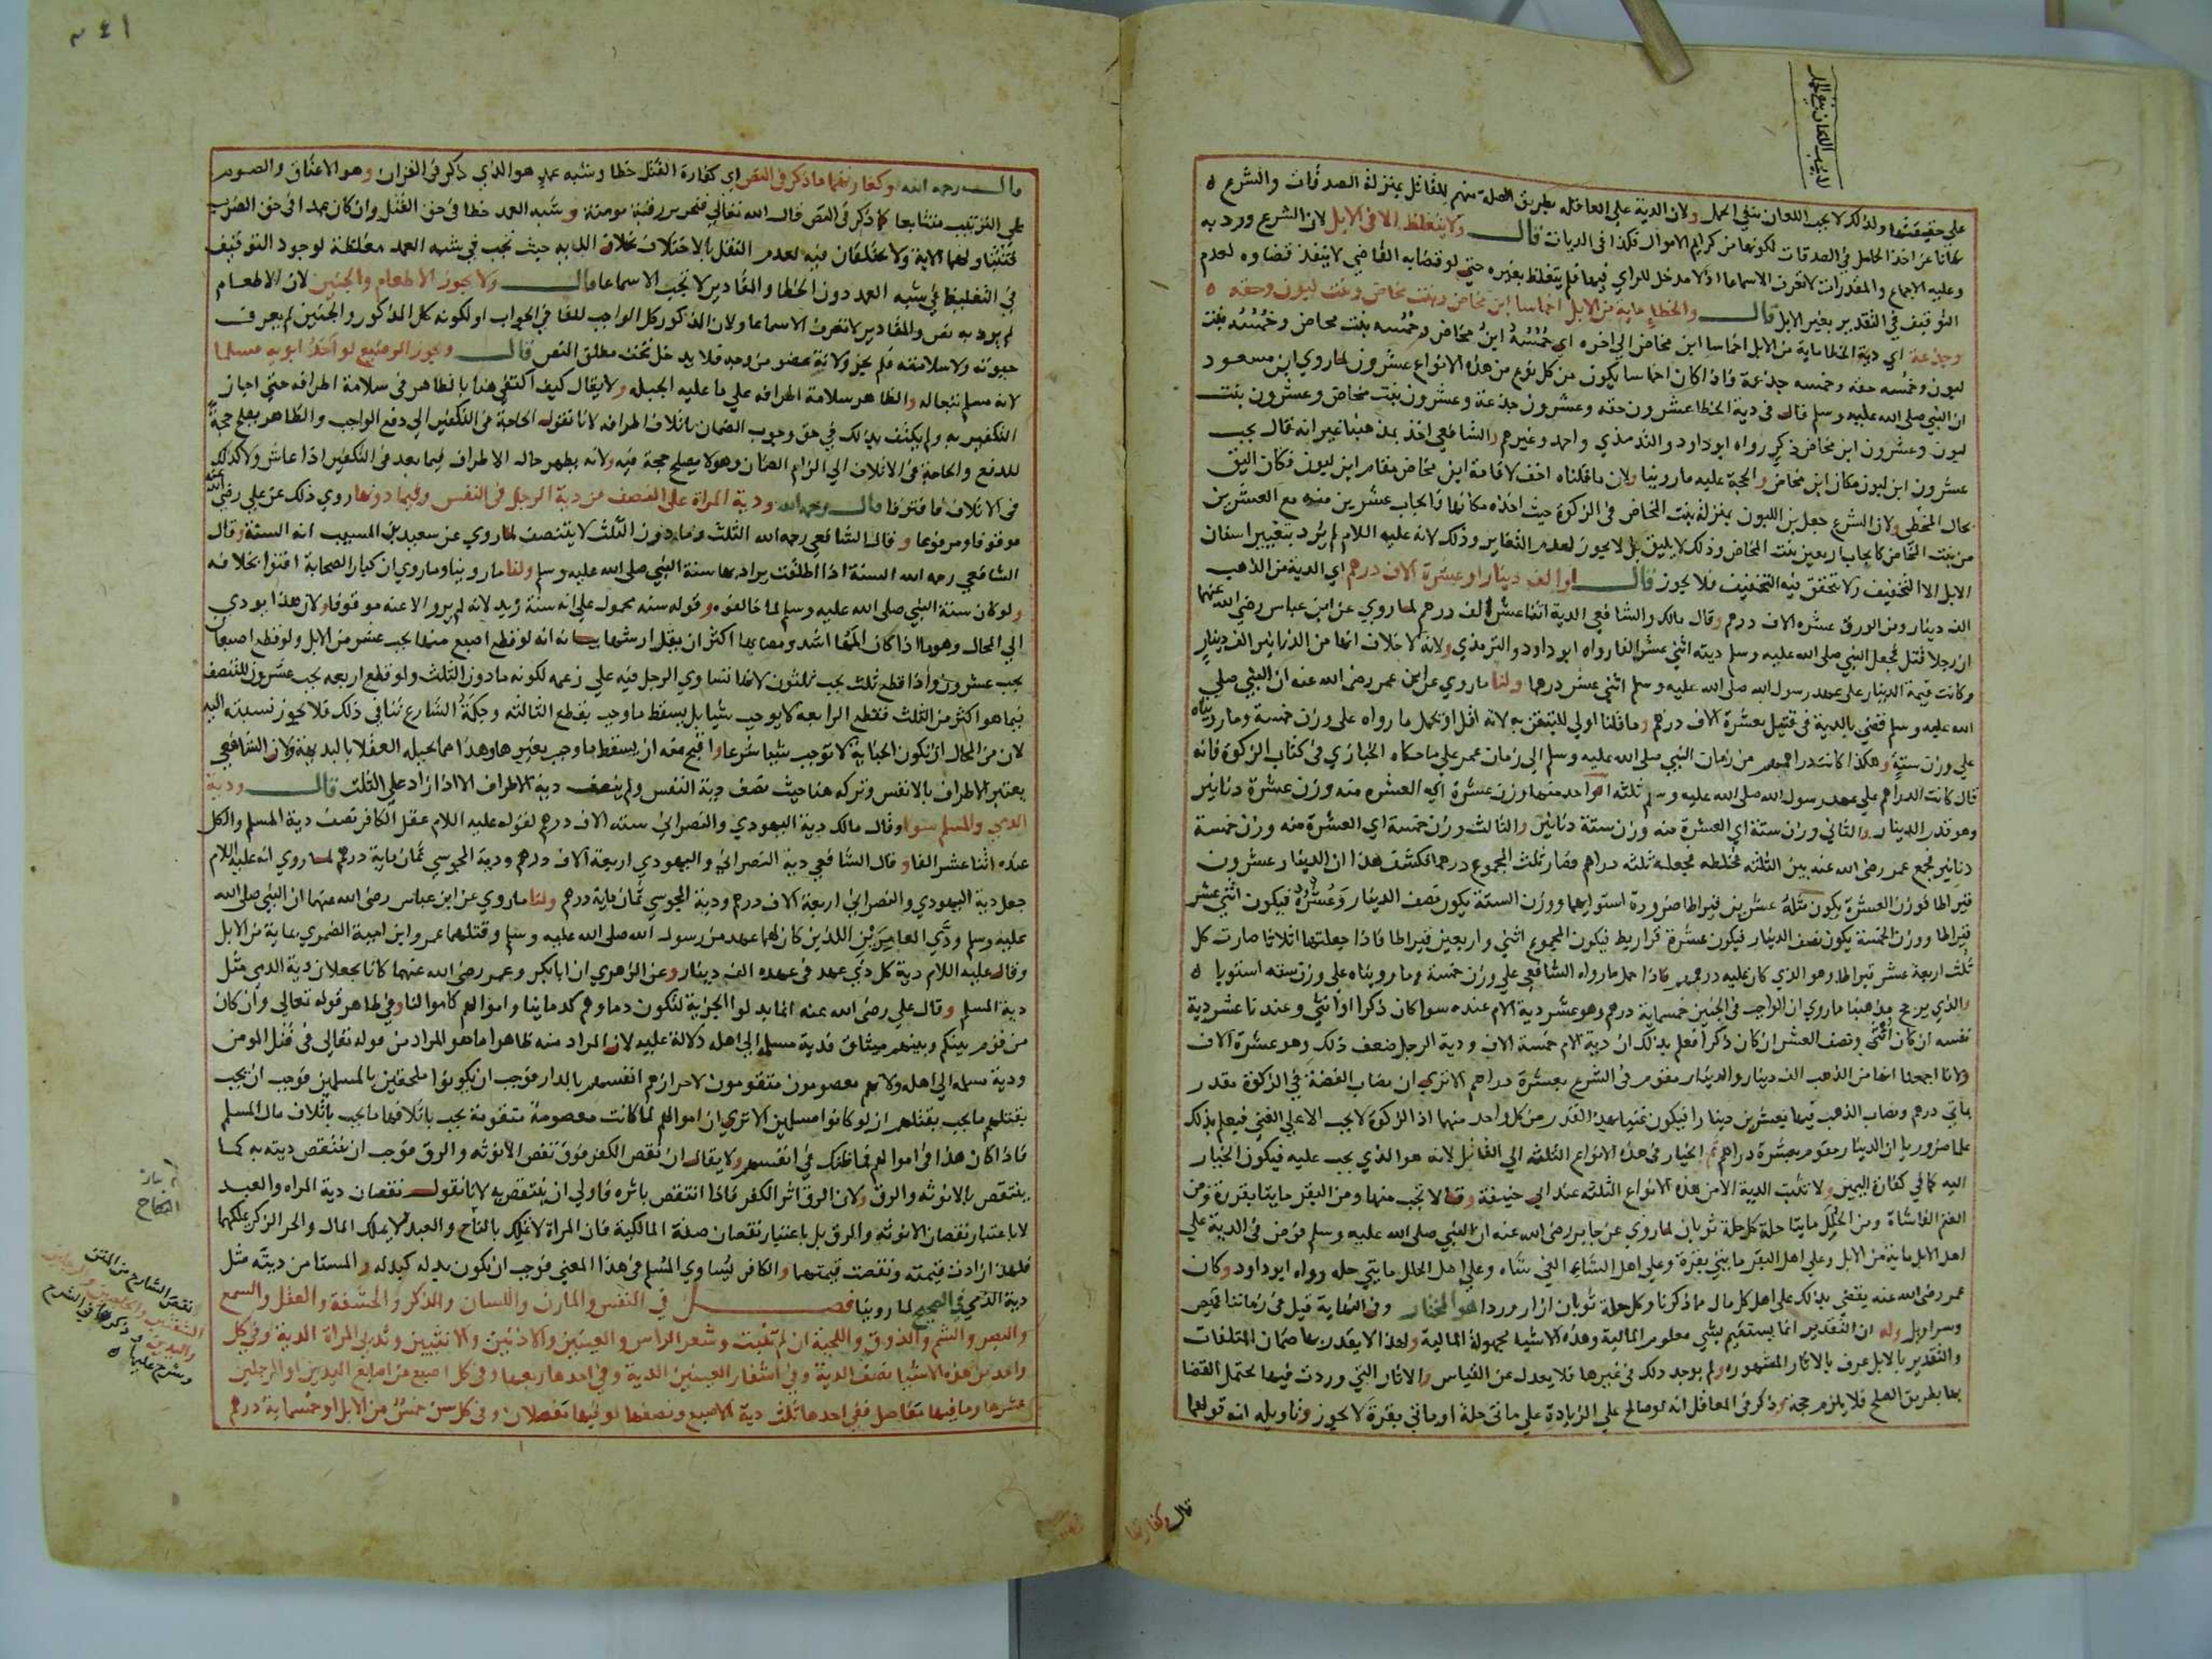 لا يجب اللعان بنفي الحمل
على حقيقتها ولذلك لا يجب اللعان بنفي الحمل ولان الدية على العاقلة بطريق الصلة منهم للقاتل بمنزلة الصدقات والشرع
نهانا عن اخذ الحامل في الصدقات لكونها من كرايم الاموال فكذا في الديات قال ولا يتغلظ الا في الابل لان الشرع ورد به
وعليه الاجماع والمقدرات لا تعرف الا سماعا اذ لا مدخل للراي فيها فلم يتغلظ بغيره حتى لو قضا به القاضي لا ينفذ قضاوه لعدم
التوقيف في التقدير بغير الابل قال والخطا ماية من الابل اخماسا ابن مخاض وبنت مخاض وبنت لبون وحقه
وجذعة اي دية الخطا ماية من الابل اخماسا ابن مخاض الى اخره اي خمسه ابن مخاض وخمسه بنت مخاض وخمسه بنت
لبون وخمسه حقه وخمسه جذعة واذا كان اخماسا يكون من كل نوع من هذه الانواع عشرون لما روي ابن مسعود
ان النبي صلى الله عليه وسلم قال في دية الخطا عشرون حقه وعشرون جذعة وعشرون بنت مخاض وعشرون بنت
لبون وعشرون ابن مخاض ذكر رواه ابو داود والترمذي واحمد وغيرهم والشافعي اخذ بمذهبنا غير انه قال يجب
عشرون ابن لبون مكان ابن مخاض والحجة عليه ما روينا ولان ما قلناه اخف لاقامة ابن مخاض مقام ابن لبون فكان اليق
بحال المخطي ولان الشرع جعل بن اللبون بمنزلة بنت المخاض في الزكوة حيث اخذه مكانها فايجاب عشرين منه مع العشرين
من بنت المخاض كايجاب اربعين بنت المخاض وذلك لا يليق بل لا يجوز لعدم التغاير وذلك لانه عليه السلام لم يرد بتغيير اسنان
الابل الا التخفيف ولا يتحقق فيه التخفيف فلا يجوز قال او الف دينار او عشرة الاف درهم اي الدية من الذهب
الف دينار ومن الورق عشره الاف درهم وقال مالك والشافعي الدية اثنا عشر الف درهم لما روي عن ابن عباس رضي الله عنهما
ان رجلا قتل فجعل النبي صلى الله عليه وسلم ديته اثني عشر الفا رواه ابو داود والترمذي ولانه لا خلاف انها من الدنانير الف دينار
وكانت قيمة الدينار على عهد رسول الله صلى الله عليه وسلم اثني عشر درهما ولنا ما روي عن ابن عمر رضي الله عنه ان النبي صلى
الله عليه وسلم قضى بالدية في قتيل بعشرة الاف درهم وما قلنا اولى للتيقن به لانه اقل او يحمل ما رواه على وزن خمسة وما رويناه
على وزن ستة وهكذا كانت دراهمهم من زمان النبي صلى الله عليه وسلم الى زمان عمر على ما حكاه الخبازي في كتاب الزكوة فانه
قال كانت الدراهم على عهد رسول الله صلى الله عليه وسلم ثلثة الواحد منها وزن عشرة اي العشره منه وزن عشرة دنانير
وهو قدر الدينار والثاني وزن ستة اي العشرة منه وزن ستة دنانير والثالث وزن خمسة اي العشرة منه وزن خمسة
دنانير فجمع عمر رضي الله عنه بين الثلثة فخلطه فجعله ثلثه دراهم فصار ثلث المجموع درهما فكشف هذا ان الدينار عشرون
قيراطا فوزن العشرة يكون مثله عشرين قيراطا ضرورة استوايهما ووزن الستة يكون نصف الدينار وعشره فيكون اثني عشر
قيراطا ووزن الخمسة يكون نصف الدينار فيكون عشرة قراريط فيكون المجموع اثني واربعين قيراطا فاذا جعلتها اثلاثا صارت كل
ثلث اربعة عشر قيراطا وهو الذي كان عليه درهمهم فاذا حمل ما رواه الشافعي على وزن خمسة وما رويناه على وزن سته استويا
والذي يرجح مذهبنا ما روي ان الواجب في الجنين خمسماية درهم وهو عشر دية الام عنده سوا كان ذكرا او انثى وعندنا عشر دية
نفسه ان كان انثى ونصف العشر ان كان ذكرا فعلم بذلك ان دية الام خمسة الاف ودية الرجل ضعف ذلك وهو عشرة الاف
ولانا اجمعنا انها من الذهب الف دينار والدينار مقوم في الشرع بعشرة دراهم الا ترى ان نصاب الفضة في الزكوة مقدر
بمايتي درهم ونصاب الذهب فيها بعشرين دينارا فيكون غنيا بهذا القدر من كل واحد منهما اذ الزكوة لا تجب الا على الغني فيعلم بذلك
علما ضروريا ان الدينار مقوم بعشرة دراهم ثم الخيار في هذه الانواع الثلثة الى القاتل لانه هو الذي يجب عليه فيكون الخيار
اليه كما في كفارة اليمين ولا تثبت الدية الا من هذه الانواع الثلثه عند ابي حنيفة وقالا تجب منها ومن البقر مايتا بقرة ومن
الغنم الفا شاة ومن الحلل مايتا حلة كل حلة ثوبان لما روي عن جابر رضي الله عنه ان النبي صلى الله عليه وسلم فرض في الدية على
اهل الابل ماية من الابل وعلى اهل البقر مايتي بقرة وعلى اهل الشاء الفي شاه وعلى اهل الحلل مايتي حله رواه ابو داود وكان
عمر رضي الله عنه يقضي بذلك على اهل كل مال ما ذكرنا وكل حلة ثوبان ازار وردا هو المختار وفي النهاية قيل في زماننا قميص
وسراويل وله ان التقدير انما يستقيم بشي معلوم المالية وهذه الاشيا مجهولة المالية ولهذا لا يقدر بها ضمان المتلفات
والتقدير بالابل عرف بالاثار المشهوره ولم يوجد ذلك في غيرها فلا يعدل عن القياس والاثار التي وردت فيها تحتمل القضا
بها بطريق الصلح فلا يلزم حجة وذكر في المعاقل انه لو صالح على الزيادة على مائتي حلة او مائتي بقرة لا يجوز وتاويله انه قولهما
قال وكفارتهما
قال رحمه الله وكفارتهما ما ذكر في النص اي كفارة القتل خطا وشبه عمد هو الذي ذكر في القران وهو الاعتاق والصوم
على الترتيب متتابعا كما ذكر في النص قال الله تعالى فتحرير رقبة مومنة وشبه العمد خطا في حق القتل وان كان عمدا في حق الضرب
فتتناولهما الاية ولا يختلفان فيه لعدم النقل بالاختلاف بخلاف الدية حيث تجب في شبه العمد مغلظة لوجود التوقيف
في التغليظ في شبه العمد دون الخطا والمقادير لا تجب الا سماعا قال ولا يجوز الاطعام والجنين لان الاطعام
لم يرد به نص والمقادير لا تعرف الا سماعا ولان المذكور كل الواجب للفا في الجواب او لكونه كل المذكور والجنين لم يعرف
حيوته ولا سلامته فلم يجز ولانه عضو من وجه فلا يدخل تحت مطلق النص قال ويجوز الرضيع لو احد ابويه مسلما
لانه مسلم تبعا له والظاهر سلامة اطرافه على ما عليه الجبله ولا يقال كيف اكتفى هنا بالظاهر في سلامة اطرافه حتى اجاز
التكفير به ولم يكتف بذلك في حق وجوب الضمان باتلاف اطرافه لانا نقول الحاجة في التكفير الى دفع الواجب والظاهر يصلح حجة
للدفع والحاجة في الاتلاف الى الزام الضمان وهو لا يصلح حجة فيه ولانه يظهر حال الاطراف فيما بعد في التكفير اذا عاش ولا كذلك
في الاتلاف فافترقا قال رحمه الله ودية المراة على النصف من دية الرجل في النفس وفيما دونها روي ذلك عن علي رضي الله عنه
موقوفا ومرفوعا وقال الشافعي رحمه الله الثلث وما دون الثلث لا يتنصف لما روي عن سعيد بن المسيب انه السنة وقال
الشافعي رحمه الله السنة اذا اطلقت يراد بها سنة النبي صلى الله عليه وسلم ولنا ما روينا وما روي ان كبار الصحابة افتوا بخلافه
ولو كان سنة النبي صلى الله عليه وسلم لما خالفوه وقوله سنه محمول على انه سنة زيد لانه لم يرو الا عنه موقوفا ولان هذا يودي
الى المحال وهو ما اذا كان المها اشد ومصابها اكثر ان يقل ارشها بيانه انه لو قطع اصبع منها يجب عشر من الابل ولو قطع اصبعان
يجب عشرون واذا قطع ثلث يجب ثلثون لانها تساوي الرجل فيه على زعمه لكونه ما دون الثلث ولو قطع اربعه يجب عشرون للتنصف
فيما هو اكثر من الثلث فقطع الرابعة لا يوجب شيا بل يسقط ما وجب بقطع الثالثه وحكمة الشارع تنافي ذلك فلا يجوز نسبته اليه
لان من المحال ان تكون الجناية لا توجب شيئا شرعا واقبح منه ان يسقط ما وجب بغيرها وهذا مما يحيله العقلا بالبديهة ولان الشافعي
يعتبر الاطراف بالانفس وتركه هنا حيث نصف دية النفس ولم ينصف دية الاطراف الا اذا زاد على الثلث قال ودية
الذمي والمسلم سوا وقال مالك دية اليهودي والنصراني سته الاف درهم لقوله عليه السلام عقل الكافر نصف دية المسلم والكل
عنده اثنا عشر الفا وقال الشافعي دية النصراني واليهودي اربعة الاف درهم ودية المجوسي ثمان ماية درهم لما روي انه عليه السلام
جعل دية اليهودي والنصراني اربعة الاف درهم ودية المجوسي ثمان ماية درهم ولنا ما روي عن ابن عباس رضي الله عنهما ان النبي صلى الله
عليه وسلم ودى العامريين اللذين كان لهما عهد من رسول الله صلى الله عليه وسلم وقتلهما عمرو ابن امية الضمري بماية من الابل
وقال عليه السلام دية كل ذي عهد في عهده الف دينار وعن الزهري ان ابا بكر وعمر رضي الله عنهما كانا يجعلان دية الذمي مثل
دية المسلم وقال علي رضي الله عنه انما بذلوا الجزية لتكون دماوهم كدماينا واموالهم كاموالنا وفي ظاهر قوله تعالى وان كان
من قوم بينكم وبينهم ميثاق فدية مسلمة الى اهله دلالة عليه لان المراد منه ظاهرا ما هو المراد من قوله تعالى في قتل المومن
ودية مسلمة الى اهله ولانهم معصومون متقومون لاحرازهم انفسهم بالدار فوجب ان يكونوا ملحقين بالمسلمين فوجب ان يجب
بقتلهم ما يجب بقتلهم ان لو كانوا مسلمين الا ترى ان اموالهم لما كانت معصومة متقومة يجب باتلافها ما يجب باتلاف مال المسلم
فاذا كان هذا في اموالهم فما ظنك في انفسهم ولا يقال ان نقص الكفر فوق نقص الانوثه والرق فوجب ان تنتقص ديته به كما
ينتقص بالانوثه والرق ولان الرق اثر الكفر فاذا انتقص باثره فاولى ان ينتقص به لانا نقول نقصان دية المراه والعبد
لا باعتبار نقصان الانوثه والرق بل باعتبار نقصان صفة المالكية فان المراة لا تملك بالنكاح والعبد لا يملك المال والحر الذكر يملكهما
فلهذا زادت قيمته ونقصت قيمتهما والكافر يساوي المسلم في هذا المعنى فوجب ان يكون بدله كبدله والمستامن ديته مثل
دية الذمي في الصحيح لما روينا فصل في النفس والمارن واللسان والذكر والحشفة والعقل والسمع
والبصر والشم والذوق واللحية ان لم تنبت وشعر الراس والعينين والاذنين والانثيين وثديي المراة الدية وفي كل
واحد من هذه الاشيا نصف الدية وفي اشفار العينين الدية وفي احدها ربعها وفي كل اصبع من اصابع اليدين او الرجلين
عشرها وما فيها مفاصل ففي احدها ثلث دية الاصبع ونصفها لو فيها مفصلان وفي كل سن خمس من الابل او خمسماية درهم
نقص الشارح من المتن
وشرح عليها